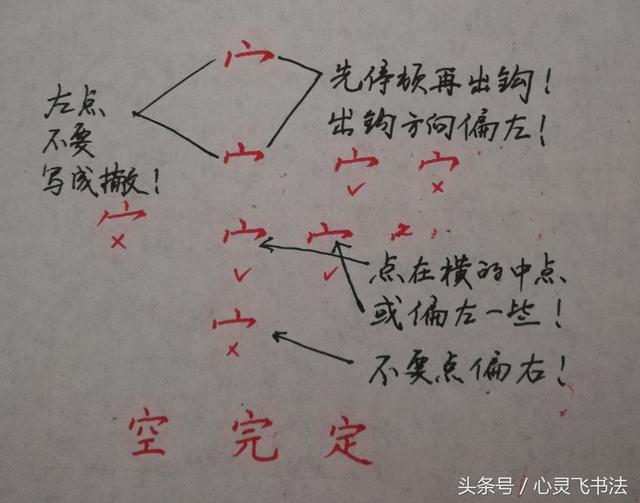 宀
左点
不要
写成撇！
先停顿再出钩！
出钩方向偏左！
宀
宀 宀
✓ ×
宀
×
宀 宀
✓ ✓
点在横的中点
或偏左一些！
宀
×
不要点偏右！
空 完 定
头条号 / 心灵飞书法